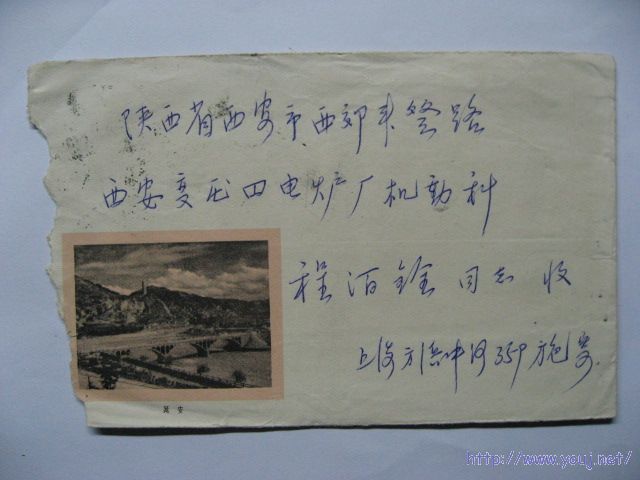 陕西省西安市西郊丰登路
西安变压四电炉厂机动科
程百铨同志 收
上海方浜中路359 施寄
延安
http://www.youj.net/